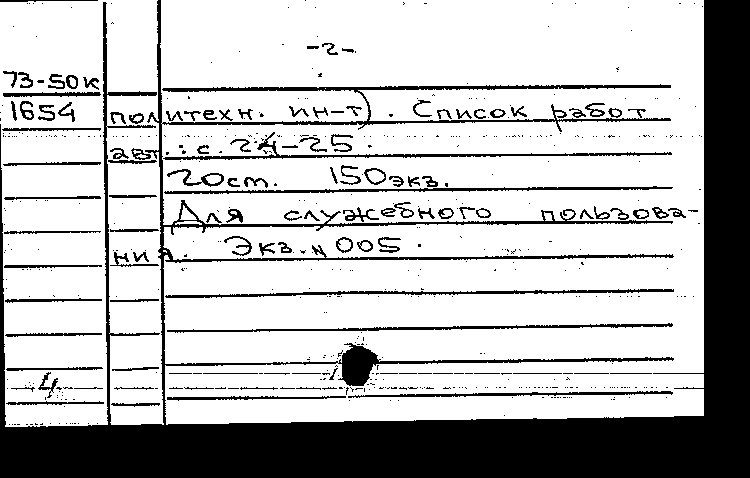 -2-
73-50к
1654 политехн. ин-т). Список работ
авт.: с. 24-25.
20см. 150экз.
Для служебного пользова-
ния. Экз.N 005.
4